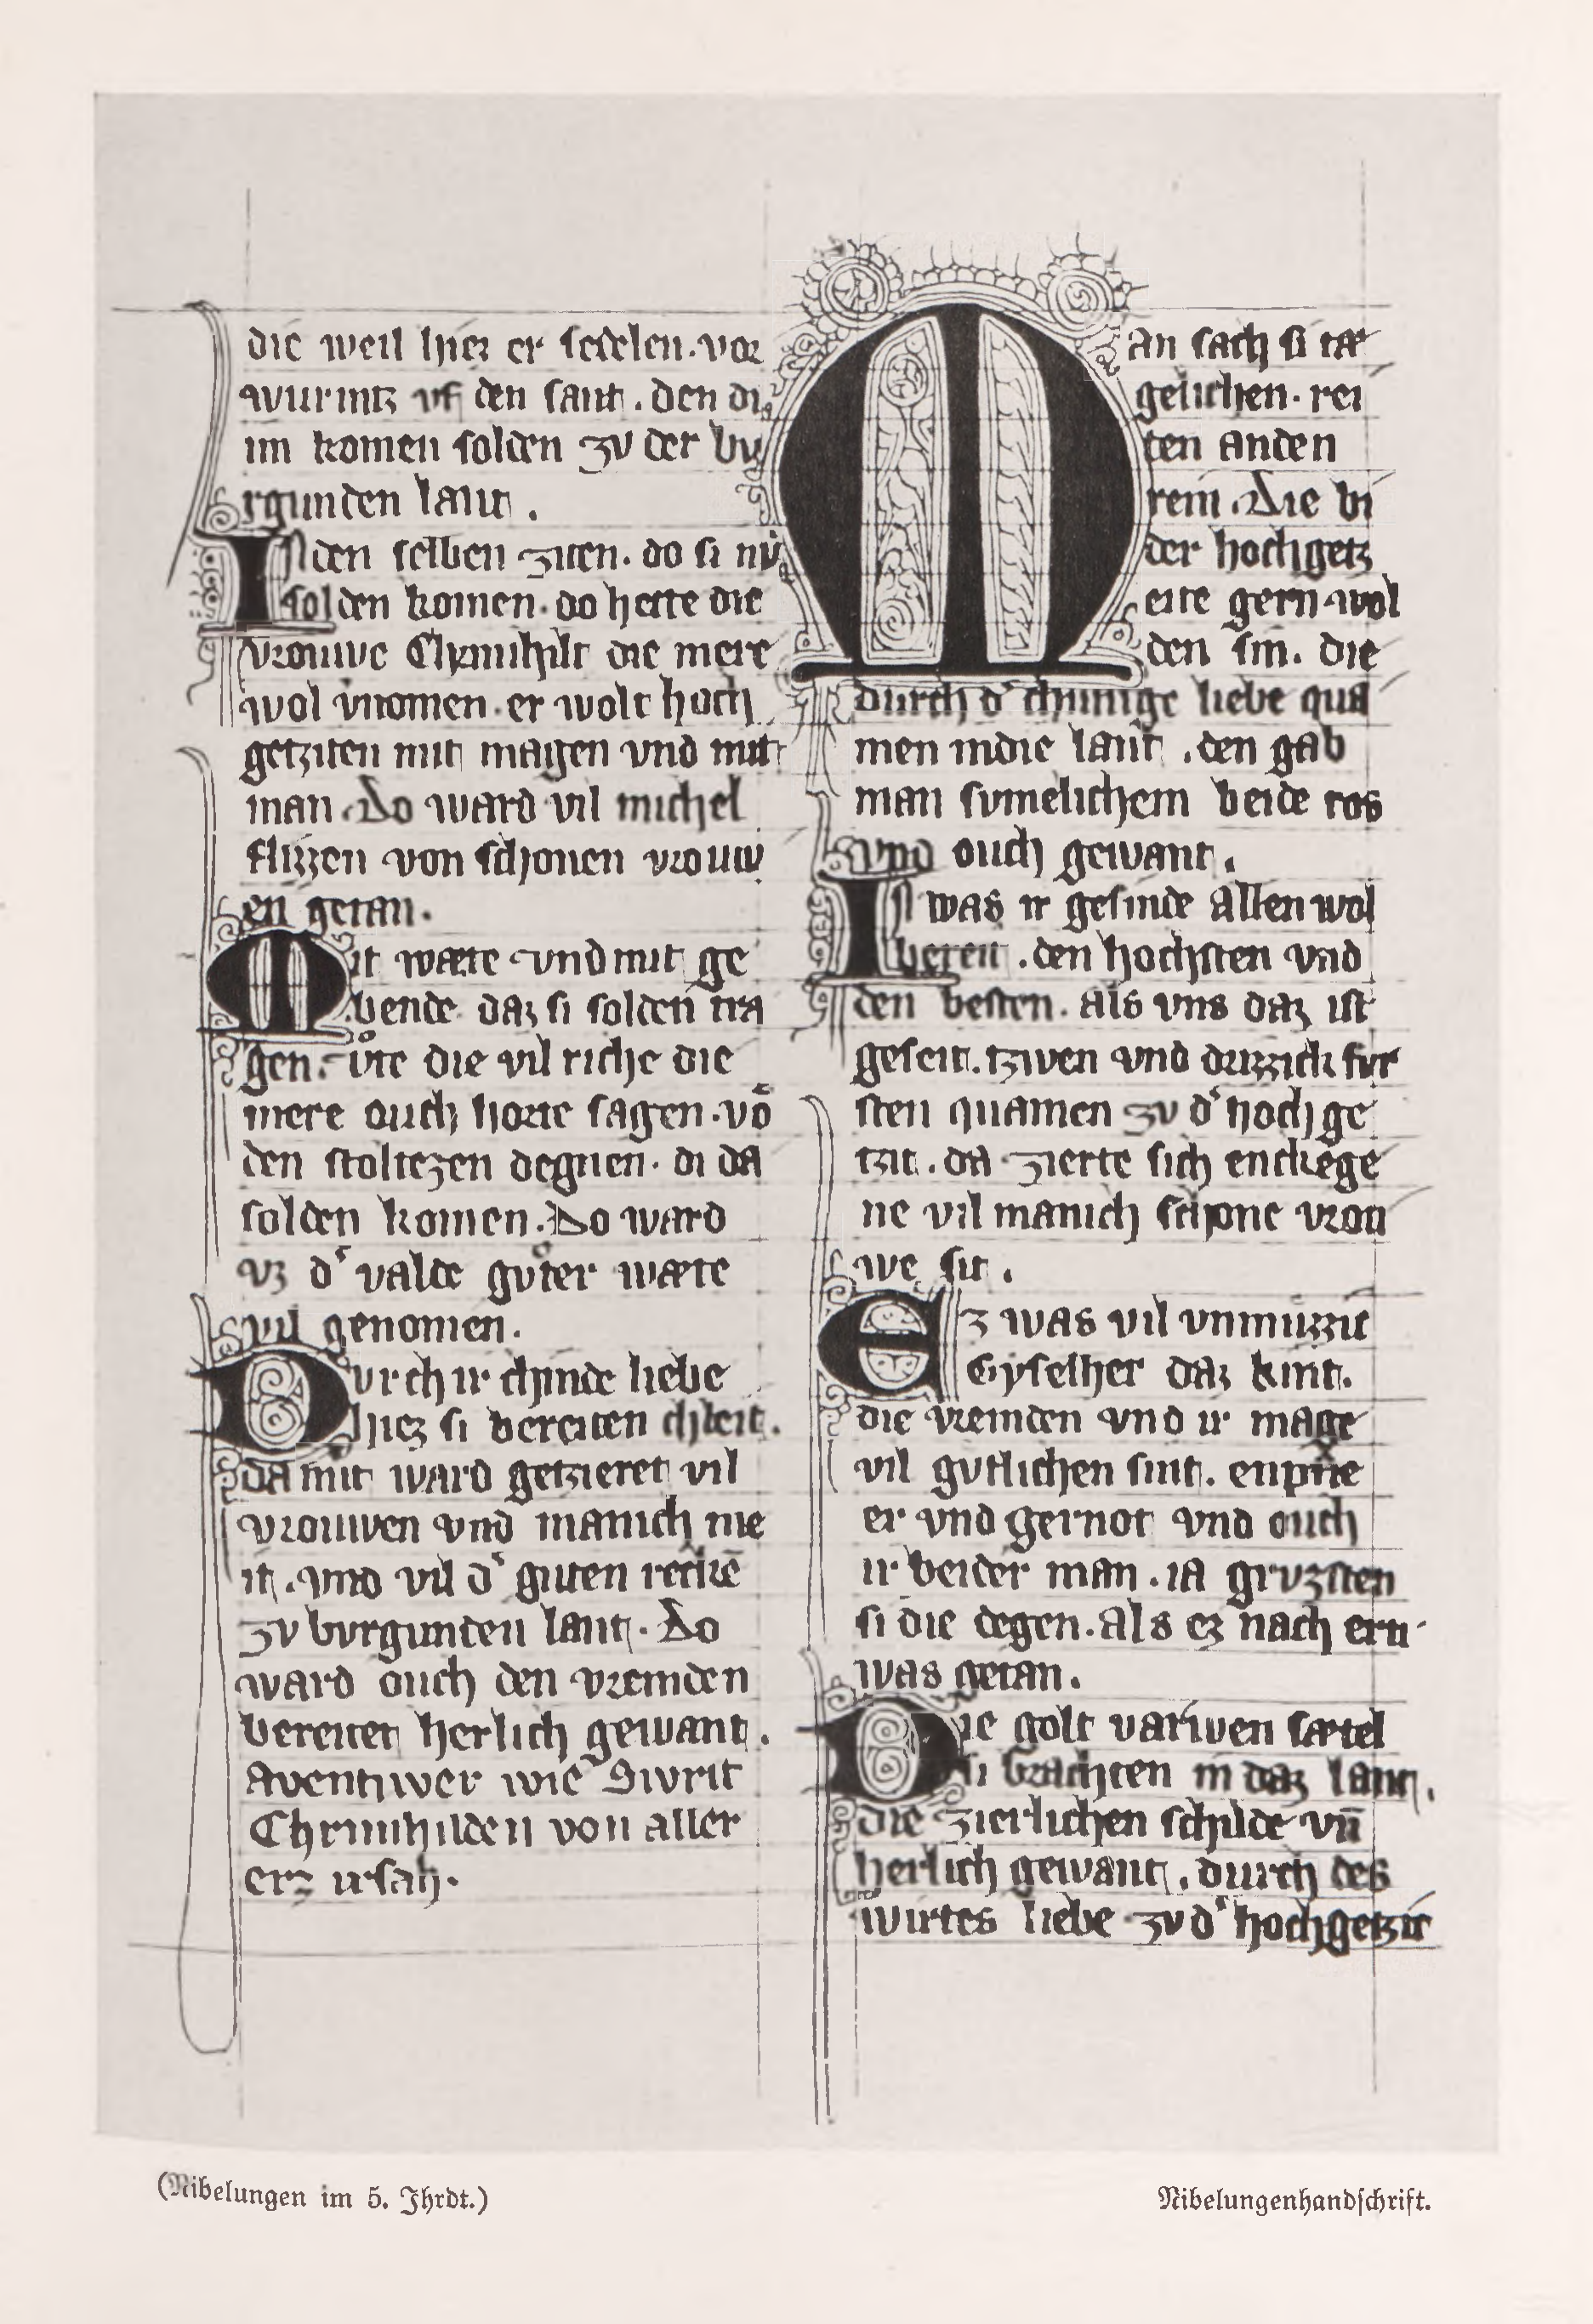 die weil hiez er sedelen · vor
wurmtz vf den sant . den di
im komen solden zv der bv
rgunden lant .
In den selben ziten · do si nv
solden komen · do hette die
vrouwe Chrimhilt die mere
wol vnomen · er wolt hoch
getziten mit magen vnd mit
man · Do ward vil michel
flizzen von schonen vrouw
en getan .
Mit wæte vnd mit ge
bende daz si solden tra
gen · vͦte die vil riche die
mere ouch horte sagen · võ
den stoltezen degnen · di da
solden komen · Do ward
vz d' valde gvͦter wæte
vil genomen .
Durch ir chinde liebe
hiez si bereiten chleit .
da mit ward getzieret vil
vrouwen vnd manich me
it . vnd vil d' guten reckē
zv burgunten lant · Do
ward ouch den vremden
bereitet herlich gewant .
Aventiwer wie Sivrit
Chrimhilden von aller
erz irsah ·
Man sach si tæ
gelichen · rei
ten anden
rein . Die bi
der hochgetz
eite gern wol
den sin . die
durch d' chunige liebe qua
men indie lant . den gab
man svmelichem beide ros
vnd ouch gewant .
In was ir gesinde allen wol
bereit . den hochsten vnd
den besten · als vns daz ist
geseit . tzwen vnd drizzich fvr
sten quamen zv d' hochge
tzit . da zierte sich enckege
ne vil manich schone vrou
we sit .
Ez was vil vnmuzzic
Gyselher daz kint .
die vremden vnd ir mage
vil gvtlichen sint . enpfie
er vnd gernot vnd ouch
ir beider man . ia grvzsten
si die degen . als ez nach ern
was getan .
Die golt varwen sætel
si brachten in daz lant .
die zierlichen schilde vn̄
herlich gewant . durch des
wirtes liebe zv d' hochgetzit
(Nibelungen im 5. Jhrdt.)
Nibelungenhandschrift.